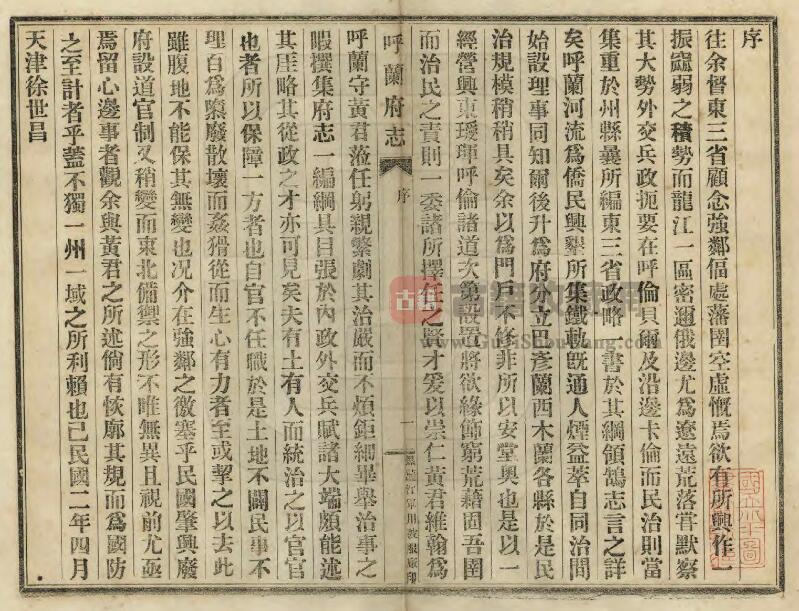 序
往余督東三省顧念強鄰偪處藩圉空虛慨焉欲有所興作一
振寙弱之積勢而龍江一區密邇俄邊尤為遼遠荒落甞默察
其大勢外交兵政扼要在呼倫貝爾及沿邊卡倫而民治則當
集重於州縣曩所編東三省政略一書於其綱領鵠志言之詳
矣呼蘭河流為僑民興墾所集鐵軌既通人煙益萃自同治間
始設理事同知爾後升為府分立巴彥蘭西木蘭各縣於是民
治規模稍稍具矣余以為門戶不修非所以安堂奧也是以一
經營興東璦琿呼倫諸道次第設置將欲緣飾窮荒藉固吾圉
而治民之責則一委諸所擇任之賢才爰以崇仁黃君維翰為
呼蘭府志
序
一
呼蘭守黃君蒞任躬親繁劇其治嚴而不煩鉅細畢舉治事之
暇撰集府志一編綱具目張於內政外交兵賦諸大端頗能述
其厓略其從政之才亦可見矣夫有土有人而統治之以官官
也者所以保障一方者也自官不任職於是土地不闢民事不
理百為隳廢散壞而姦猾從而生心有力者至或挈之以去此
雖腹地不能保其無變也況介在強鄰之徼塞乎民國肇興廢
府設道官制又稍變而東北備禦之形不唯無異且視前尤亟
焉留心邊事者觀余與黃君之所述倘有恢廓其規而為國防
之至計者乎蓋不獨一州一域之所利賴也已民國二年四月
天津徐世昌